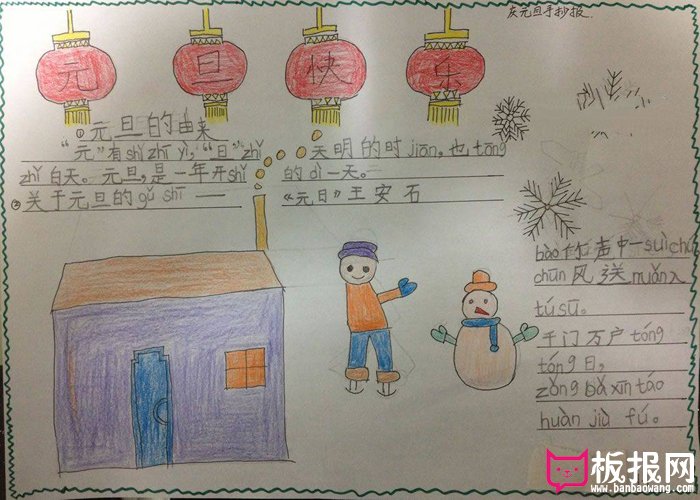 庆元旦手抄报.
元 旦 快 乐
①元旦的由来
"元"有shǐ zhī yì,"旦"zhǐ 天明的时jiān,也tōng
zhǐ白天。元旦,是一年开shǐ 的dì一天。
②关于元旦的gǔ shī —— 《元日》王安石
bào竹声中一suì chú
chūn风送nuǎn入
tú sū。
千门万户tóng
tóng日,
zǒng bǎ xīn táo
huàn jiù fú。
板报网
www.banbaowang.com